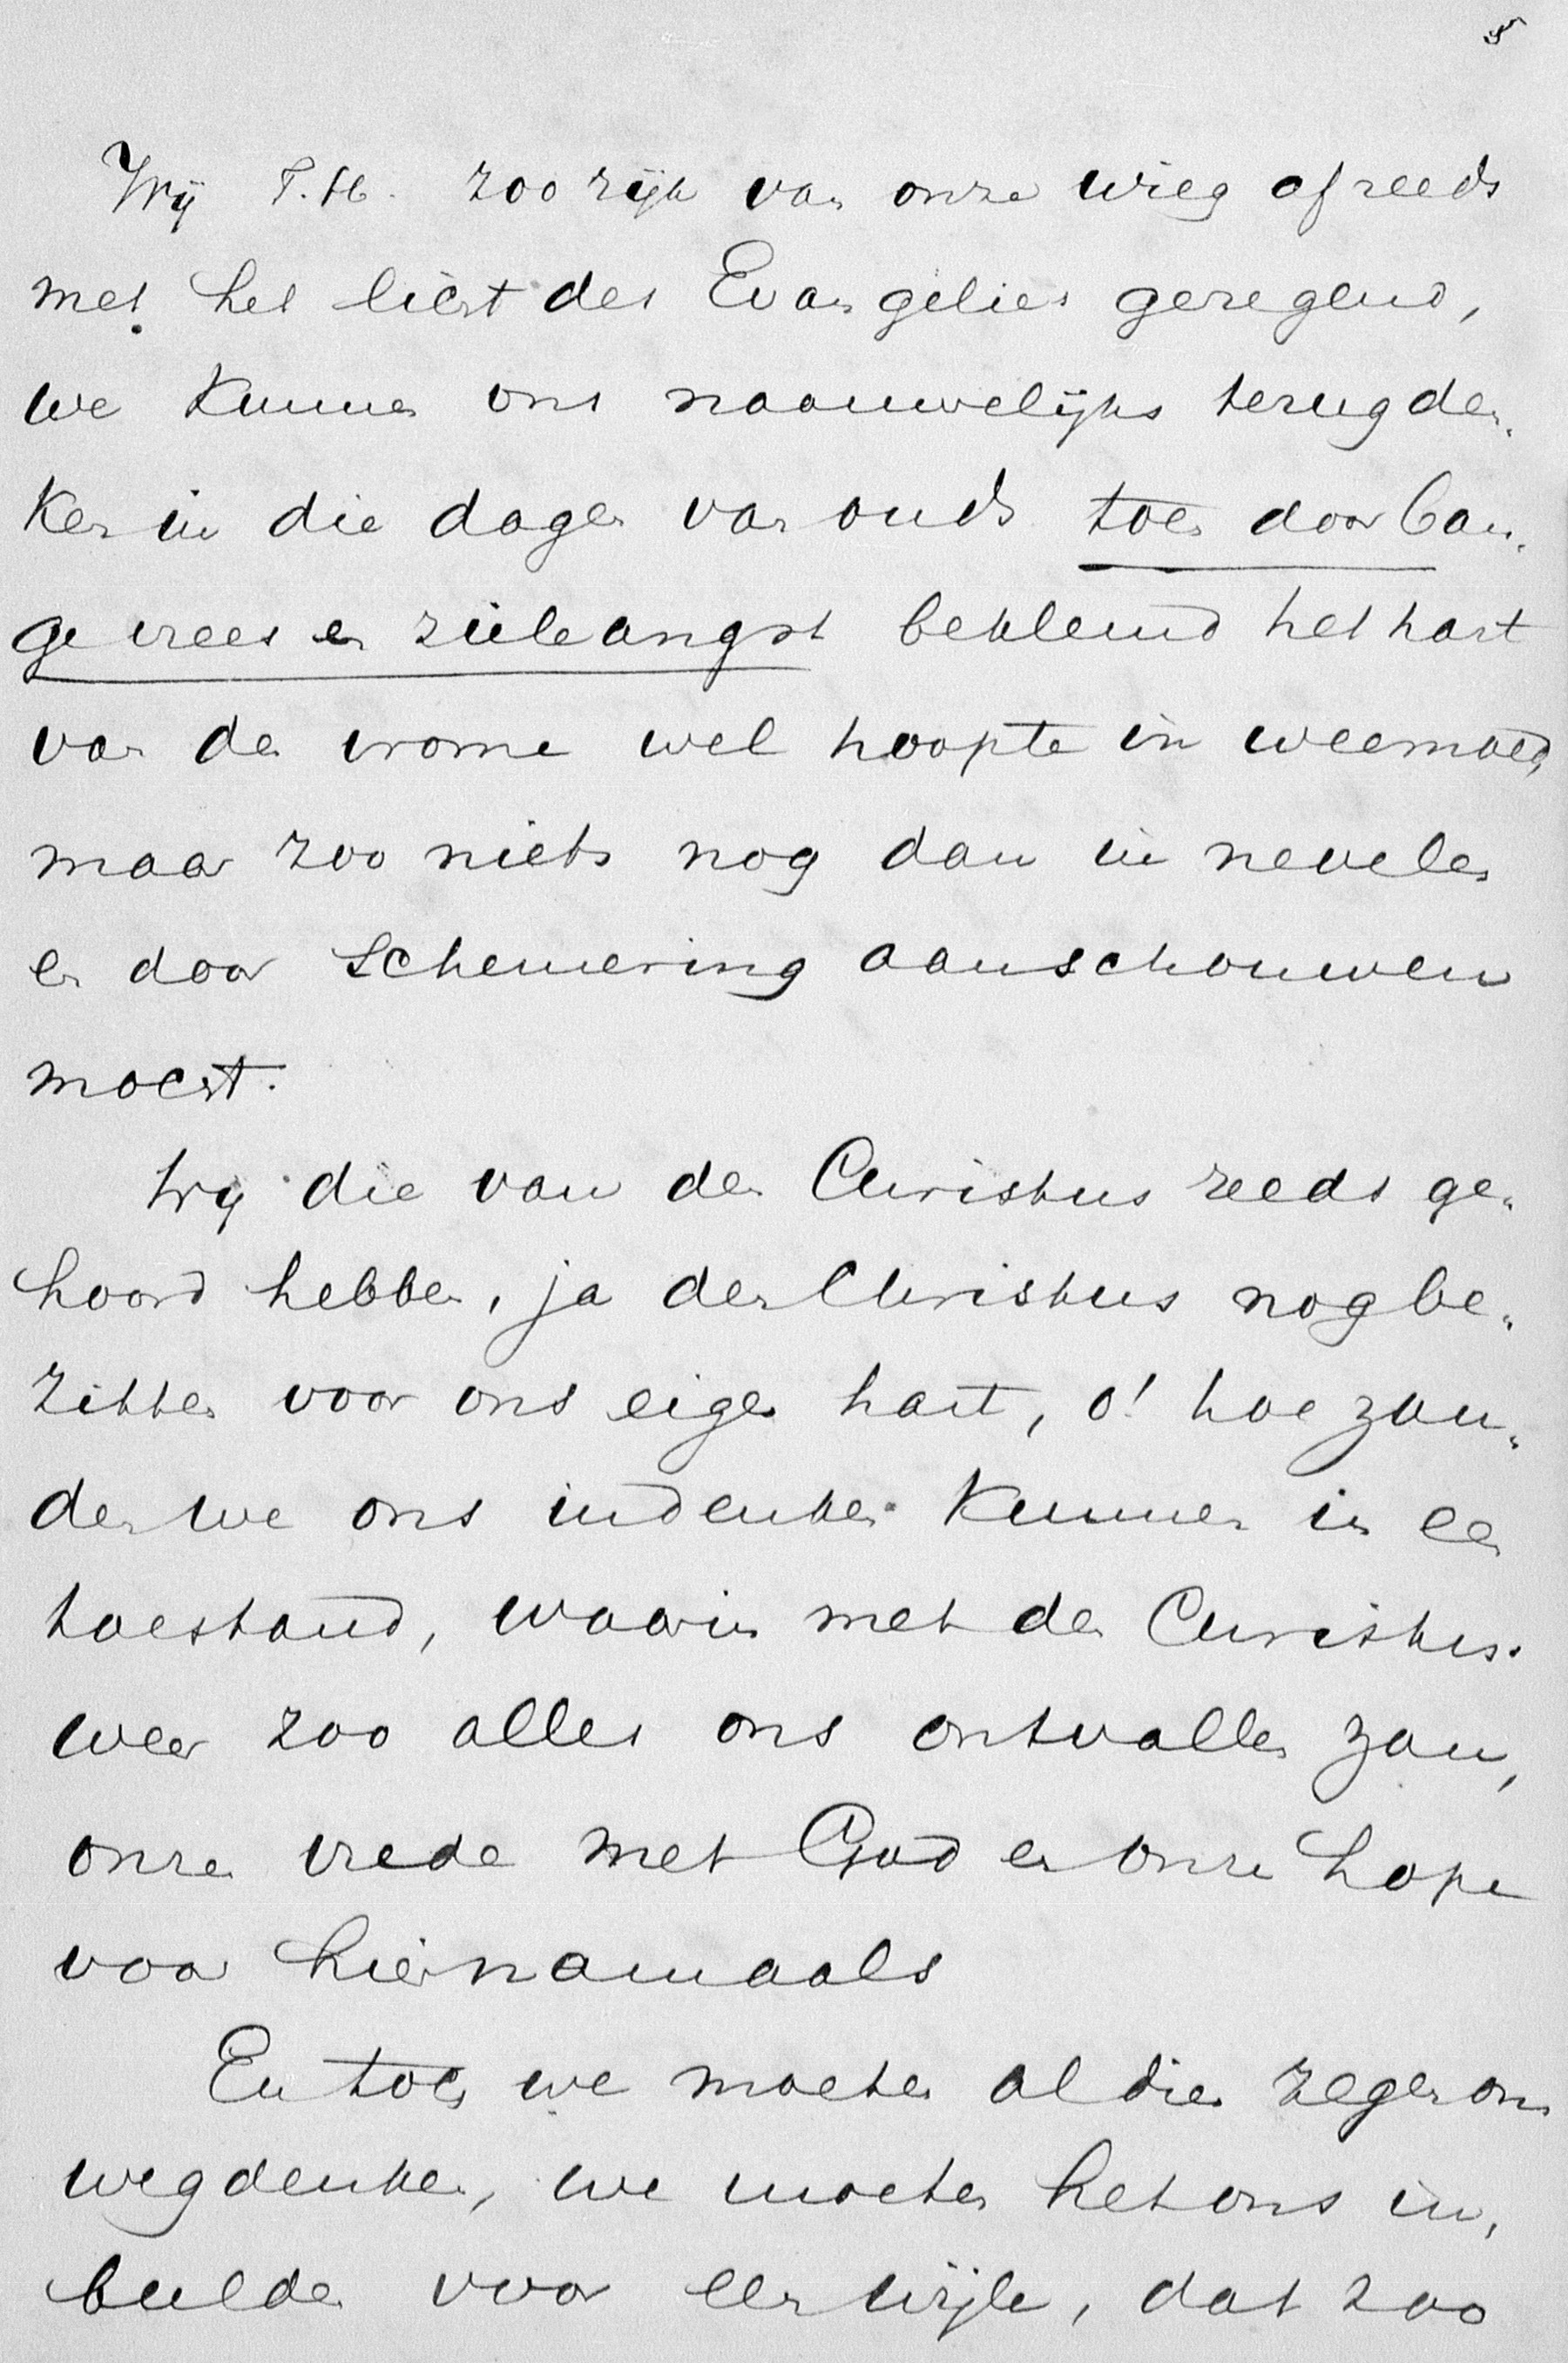 5
Wij T.H. zoo rijk van onze wieg af reeds
met het licht des Evangelies gezegend,
we kunnen ons naauwelijks terugden-
ken in die dagen van ouds toen door ban-
ge vrees en zieleangst beklemd het hart
van den vrome wel hoopte in weemoed,
maar zoo niets nog dan in nevelen
en door schemering aanschouwen
moest.
Wij die van den Christus reeds ge-
hoord hebben, ja den Christus nog be-
zitten voor ons eigen hart, o! hoe zou-
den we ons indenken kunnen in een
toestand, waarin met den Christus
weer zoo alles ons ontvallen zou,
onze vrede met God en onze hope
voor hiernamaals
En toch we moeten al dien zegen ons
wegdenken, we moeten het ons in-
beelden voor een wijle, dat zoo